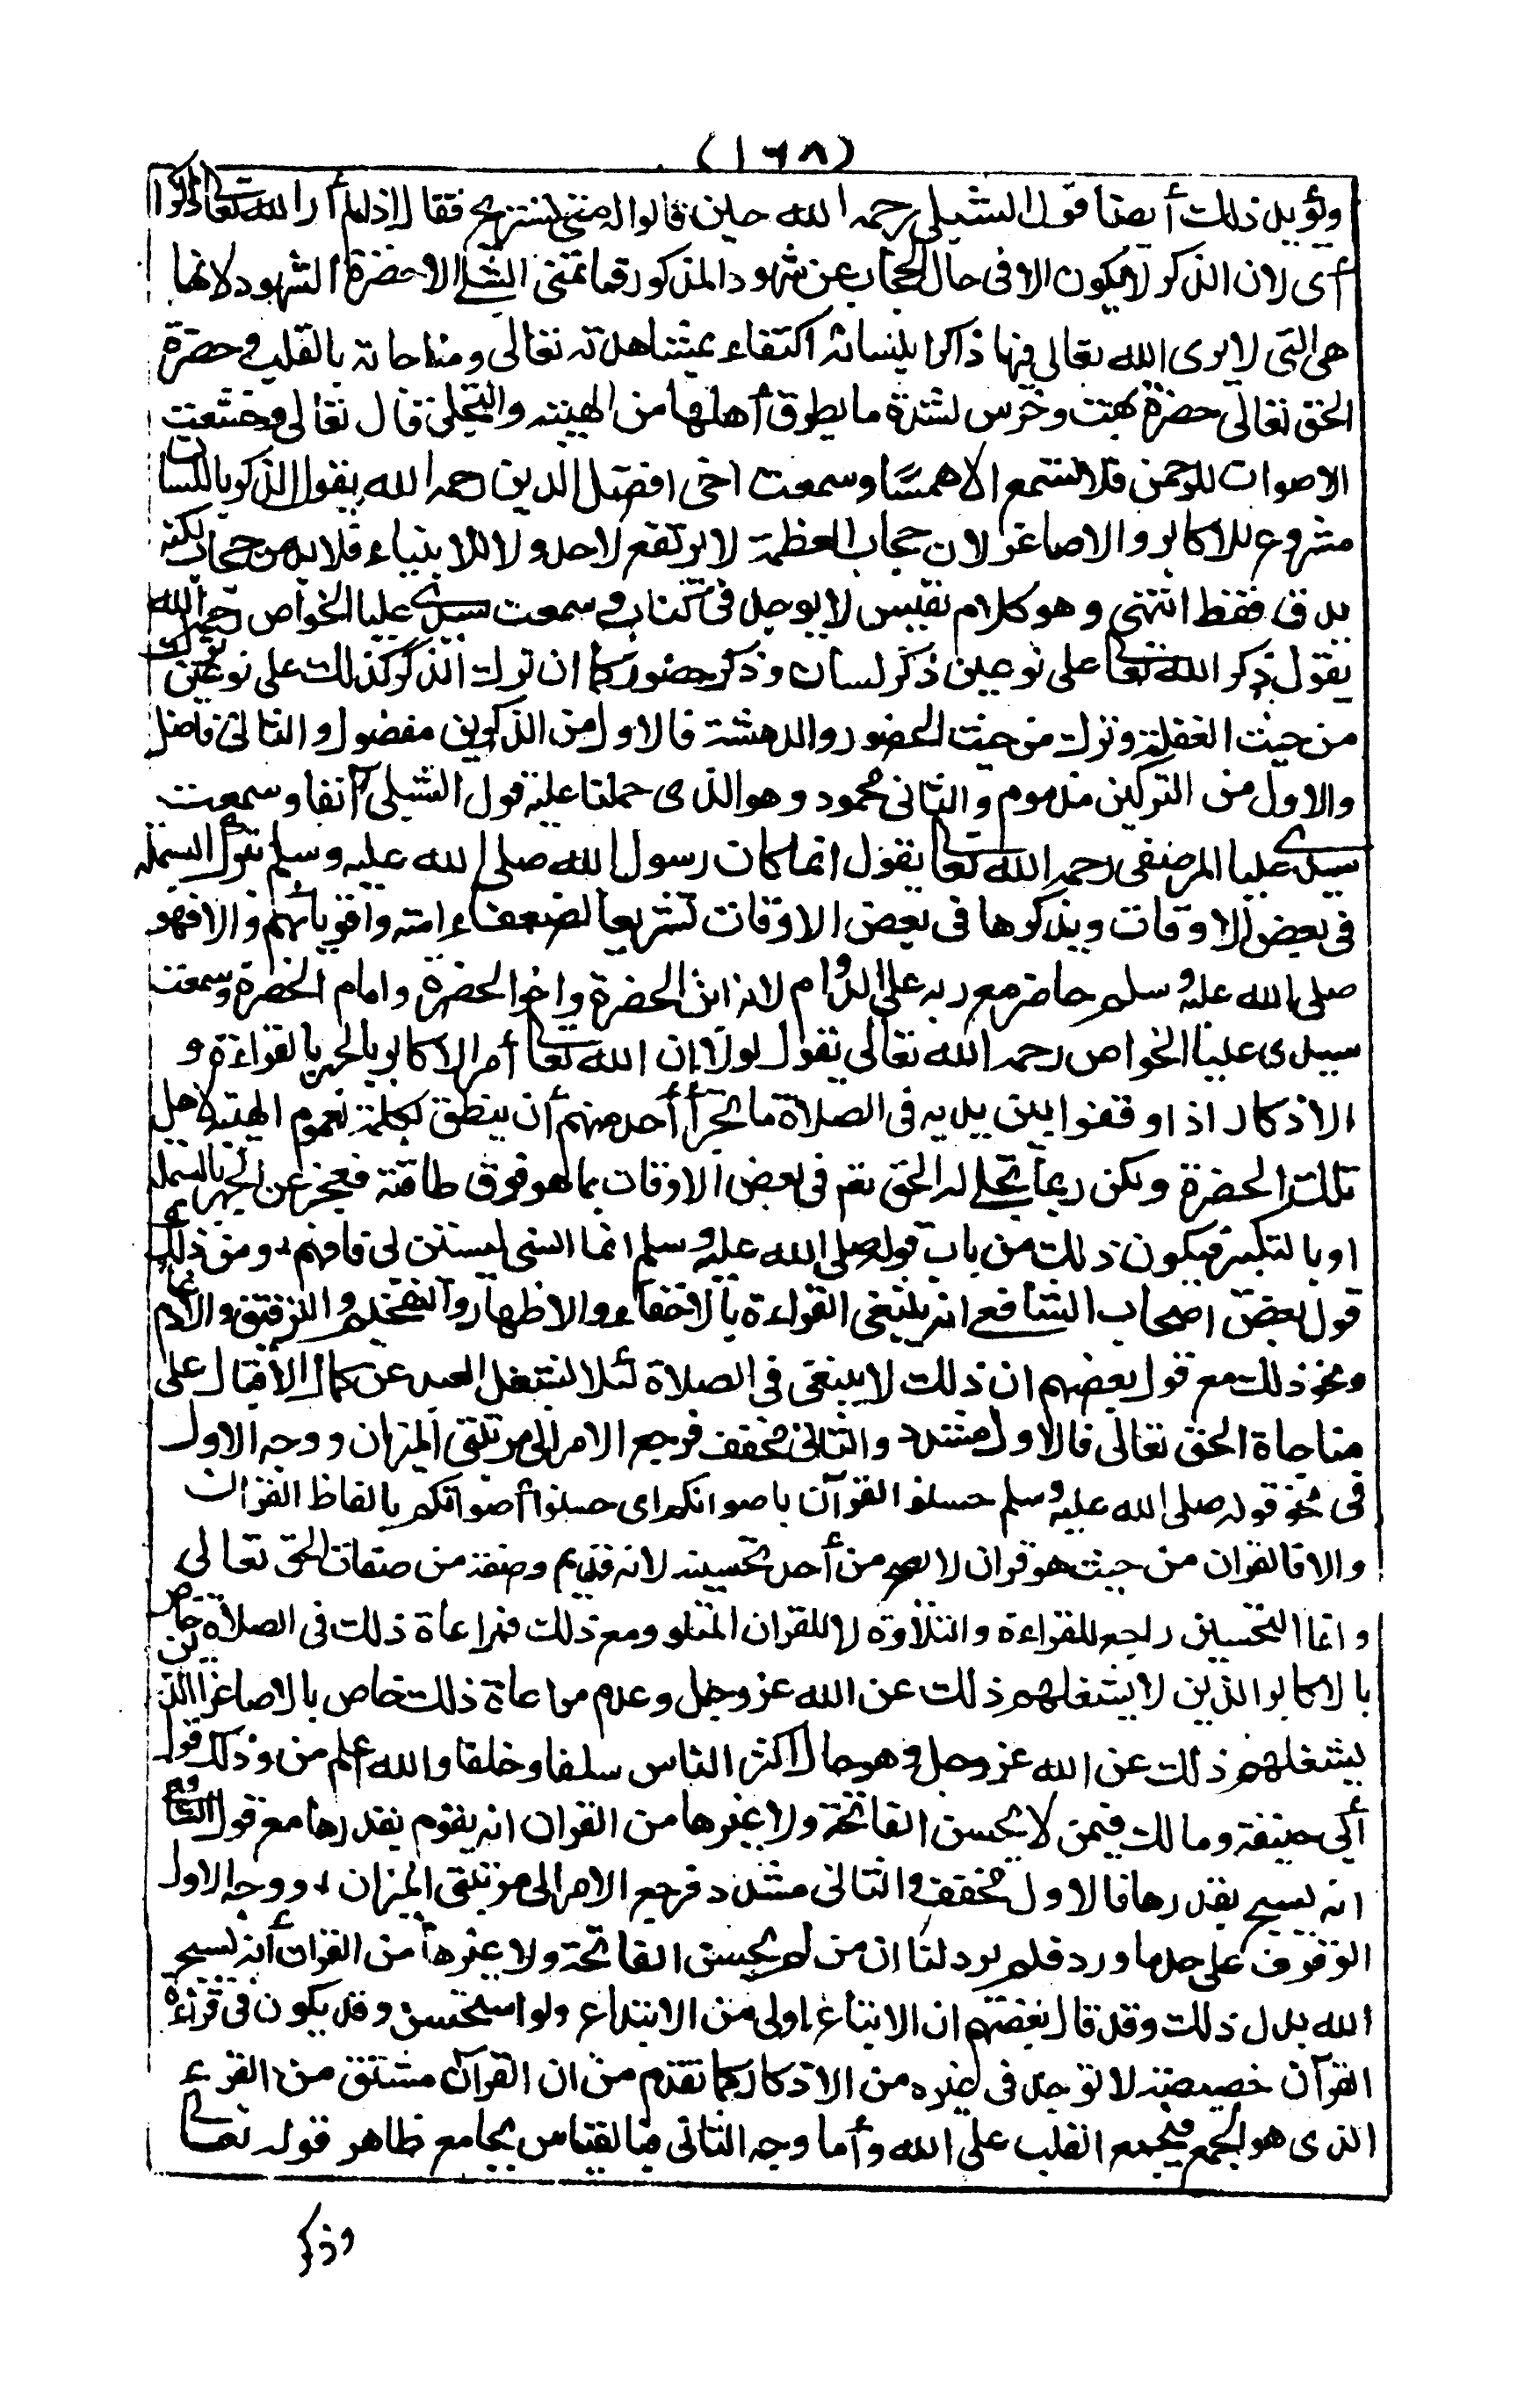 (١٦٨)
ويؤيد ذلك أيضا قول الشبلي رحمه الله حين قالوا له متى تستريح فقال إذا لم أر الله تعالى ذاكرا
أي لان الذكر لا يكون الا في حال الحجاب عن شهود المذكور فما تمنى الشبلي الا حضرة الشهود لانها
هي التي لا يرى الله تعالى فيها ذاكرا بلسانه اكتفاء بمشاهدته تعالى ومناجاته بالقلب في حضرة
الحق تعالى حضرة بهت وخرس لشدة ما يطرق أهلها من الهيبة والتجلي قال تعالى وخشعت
الاصوات للرحمن فلا تسمع الا همسا وسمعت اخي افضل الدين رحمه الله يقول الذكر باللسان
مشروع للاكابر والاصاغر لان حجاب العظمة لا يرتفع لاحد ولا للانبياء فلا بد من حجاب لكنه
يدق فقط انتهى وهو كلام نفيس لا يوجد في كتاب وسمعت سيدي عليا الخواص رحمه الله
يقول ذكر الله تعالى على نوعين ذكر لسان وذكر حضور كما ان ترك الذكر كذلك على نوعين ترك
من حيث الغفلة وترك من حيث الحضور والدهشة فالاول من الذكرين مفضول والثاني فاضل
والاول من التركين مذموم والثاني محمود وهو الذي حملنا عليه قول الشبلي آنفا وسمعت
سيدي عليا المرصفى رحمه الله تعالى يقول انما كان رسول الله صلى الله عليه وسلم يترك البسملة
في بعض الاوقات ويذكرها في بعض الاوقات تشريعا لضعفاء امته واقويائهم والا فهو
صلى الله عليه وسلم حاضر مع ربه على الدوام لانه ابن الحضرة واخو الحضرة وامام الحضرة وسمعت
سيدي عليا الخواص رحمه الله تعالى يقول لولا ان الله تعالى أمر الاكابر بالجهر بالقراءة و
الاذكار اذا وقفوا بين يديه في الصلاة ما تجرأ أحد منهم أن ينطق بكلمة لعموم الهيبة لاهل
تلك الحضرة ولكن ربما تجلى له الحق تع في بعض الاوقات بما هو فوق طاقته فعجز عن الجهر بالبسملة
او بالتكبير فيكون ذلك من باب قوله صلى الله عليه وسلم انما انسى ليستن لى فافهم، ومن ذلك
قول بعض اصحاب الشافعي انه ينبغي القراءة بالاخفاء والاظهار والتفخيم والترقيق والادغام
ونحو ذلك مع قول بعضهم ان ذلك لا ينبغي في الصلاة لئلا يشتغل العبد عن كمال الأقبال على
مناجاة الحق تعالى فالاول مشدد والثاني مخفف فرجع الامر الى مرتبتي الميزان ووجه الاول
في نحو قوله صلى الله عليه وسلم حسنوا القرآن باصواتكم اى حسنوا أصواتكم بالفاظ القرآن
والا فالقران من حيث هو قران لا يصح من أحد تحسينه لانه قديم وصفة من صفات الحق تعالى
وانما التحسين راجع للقراءة والتلاوة لا للقران المتلو ومع ذلك فمراعاة ذلك في الصلاة خاص
بالاكابر الذين لا يشغلهم ذلك عن الله عز وجل وعدم مراعاة ذلك خاص بالاصاغر الذين
يشغلهم ذلك عن الله عز وجل وهو حال اكثر الناس سلفا وخلفا والله اعلم ومن ذلك قول
أبي حنيفة ومالك فيمن لا يحسن الفاتحة ولا غيرها من القران انه يقوم بقدرها مع قول الشافعي
انه يسبح بقدرها فالاول مخفف والثاني مشدد فرجع الامر الى مرتبتي الميزان، ووجه الاول
الوقوف على حد ما ورد فلم يرد لنا ان من لم يحسن الفاتحة ولا غيرها من القران أنه يسبح
الله بدل ذلك وقد قال بعضهم ان الاتباع اولى من الابتداع ولو استحسن وقد يكون في قراءة
القرآن خصيصة لا توجد في غيره من الاذكار كما تقدم من ان القرآن مشتق من القرء
الذي هو الجمع فيجمع القلب على الله وأما وجه الثاني فبالقياس بجامع ظاهر قوله تعالى
وذكر